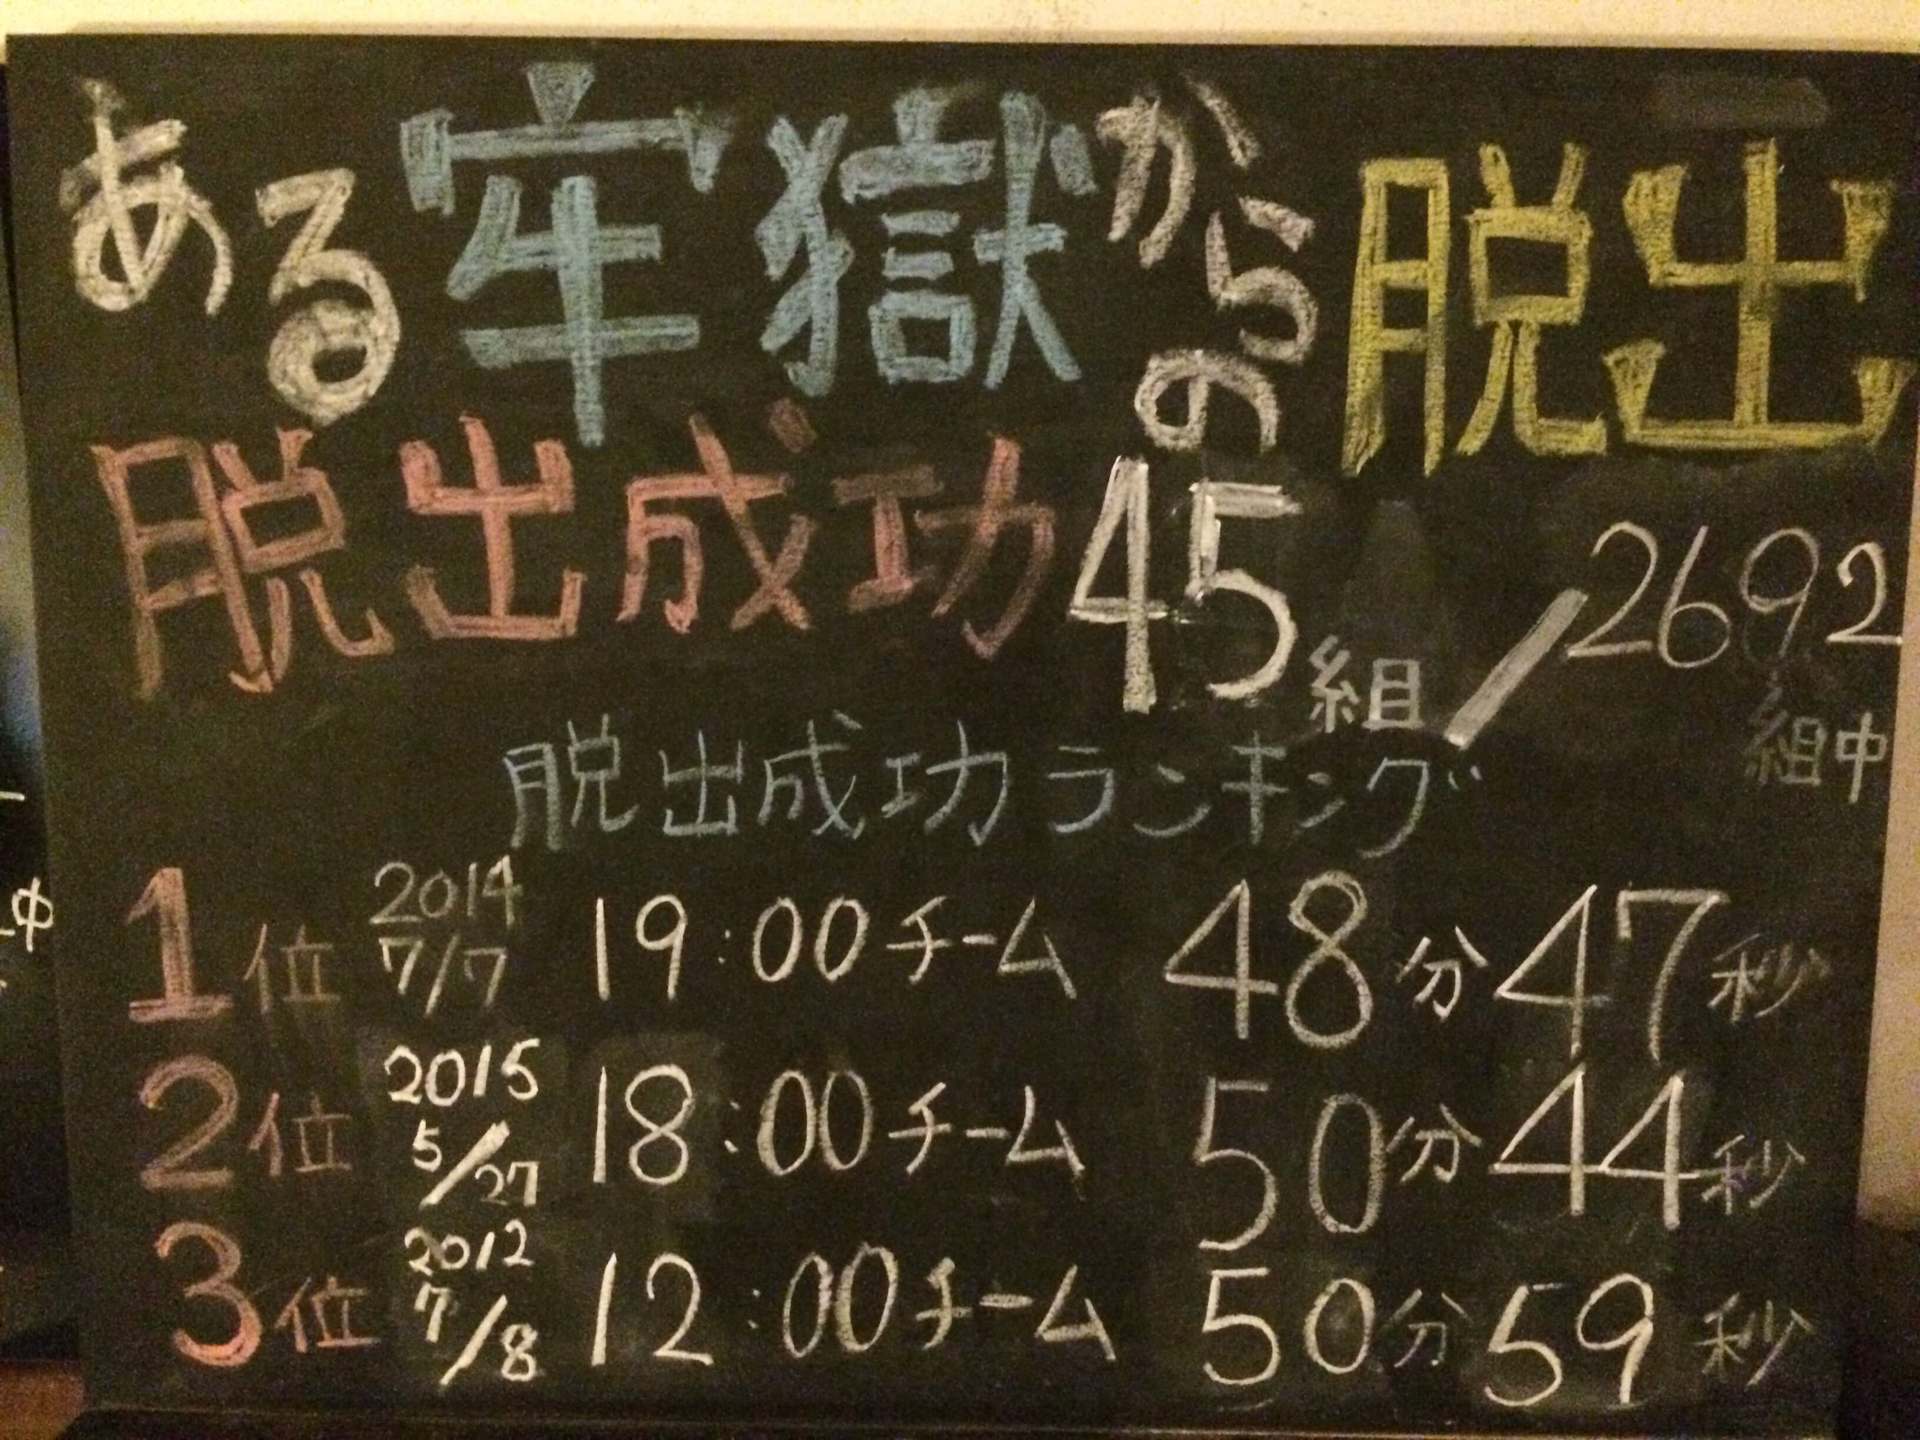 ある牢獄からの脱出
脱出成功45組/2692組中
脱出成功ランキング
1位 2014 7/7 19:00チーム 48分47秒
2位 2015 5/27 18:00チーム 50分44秒
3位 2012 7/8 12:00チーム 50分59秒
中